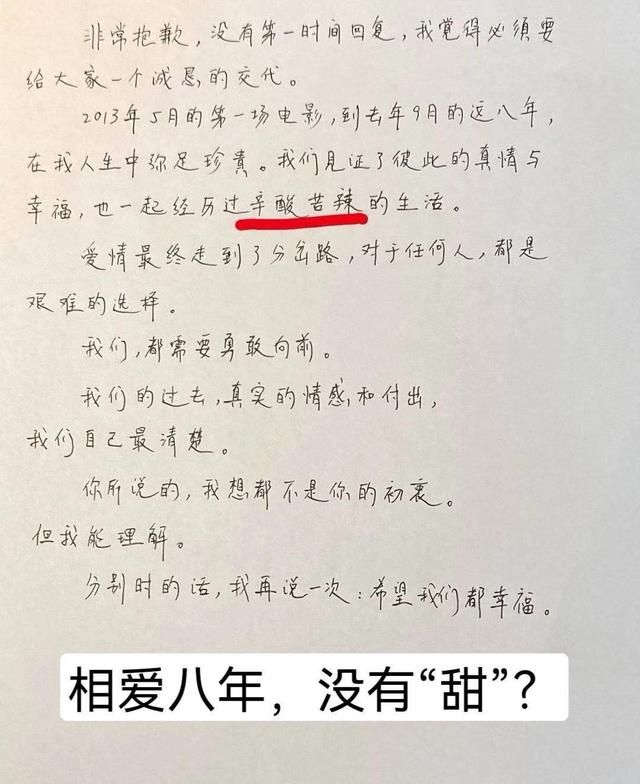 非常抱歉，没有第一时间回复，我觉得必须要
给大家一个诚恳的交代。
2013年5月的第一场电影，到去年9月的这八年，
在我人生中弥足珍贵。我们见证了彼此的真情与
幸福，也一起经历过辛酸苦辣的生活。
爱情最终走到了分岔路，对于任何人，都是
艰难的选择。
我们，都需要勇敢向前。
我们的过去，真实的情感和付出，
我们自己最清楚。
你所说的，我想都不是你的初衷。
但我能理解。
分别时的话，我再说一次：希望我们都幸福。
相爱八年，没有“甜”？